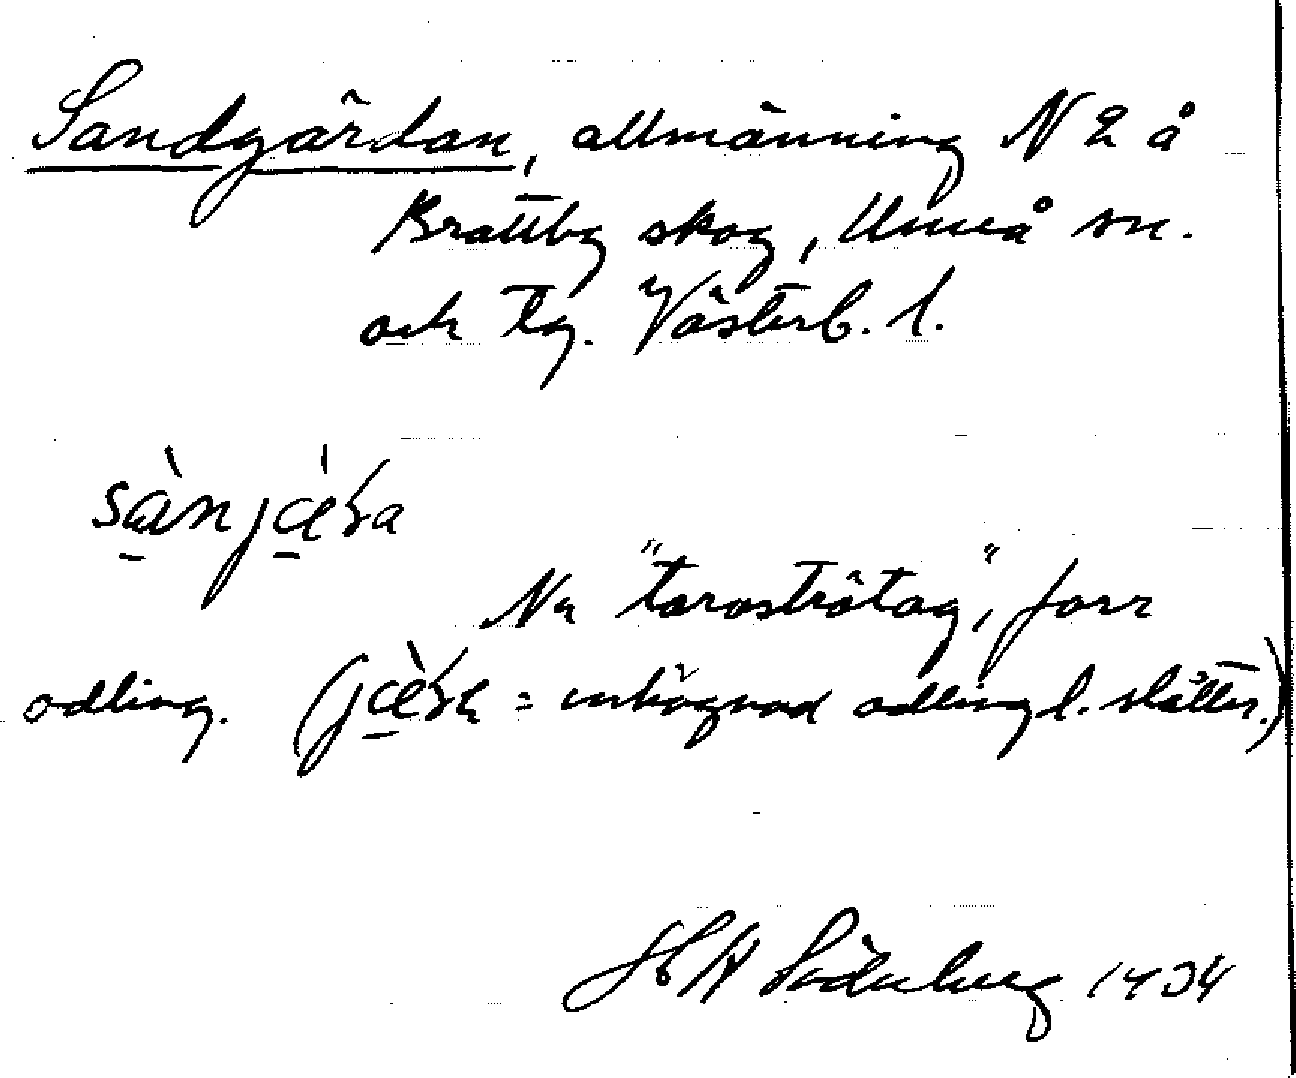 Sandgärdan, allmänning N 2 å
Brattby skog, Umeå sn.
och tg. Västerb. l.
sànjæ̀ɽa
Nu "torvströtag", förr
odling. (jæ̀ɽɐ = inhägnad odling l. slåtter.)
Söderberg 1934